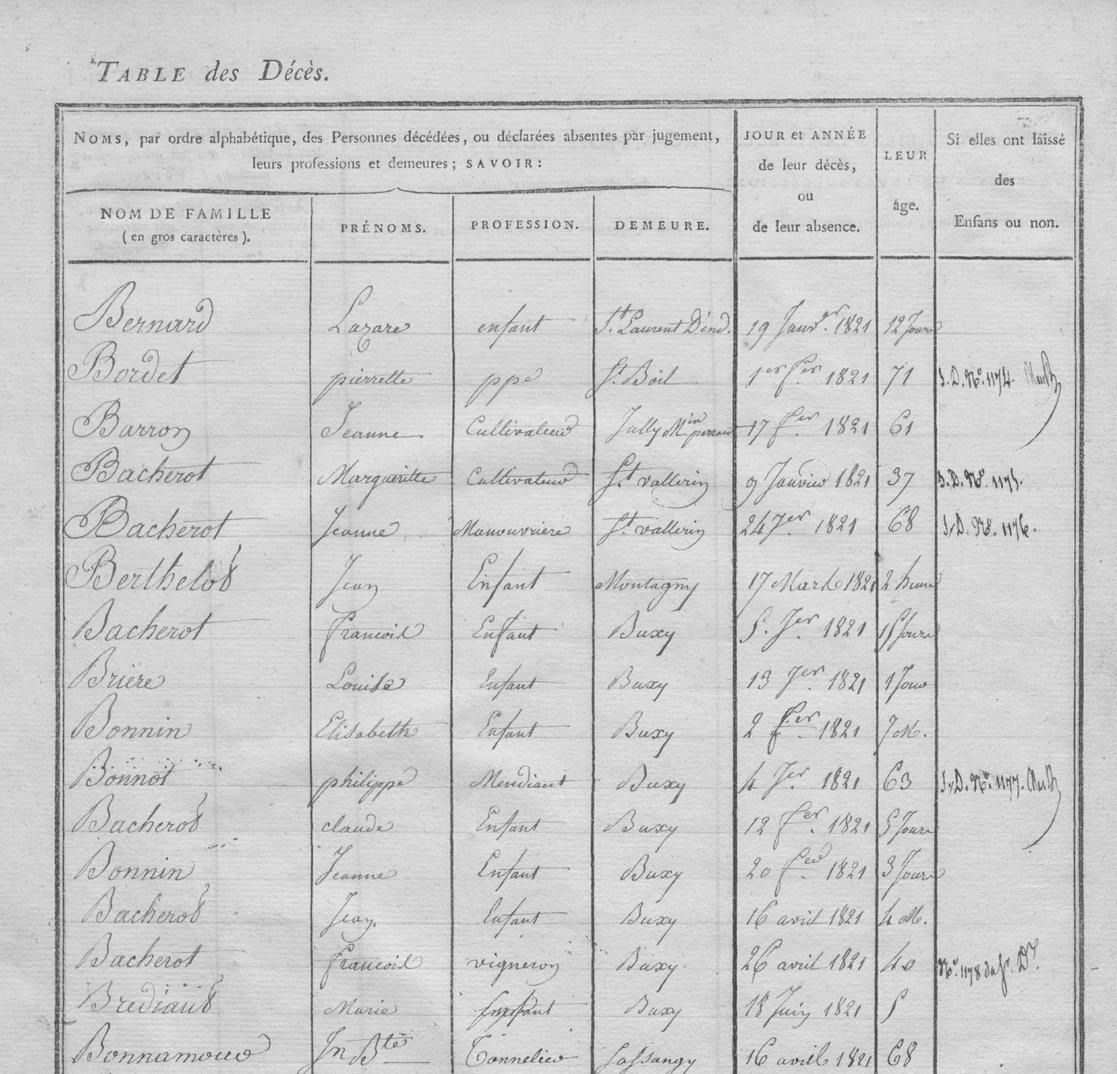 TABLE des Décès.
NOMS, par ordre alphabétique, des Personnes décédées, ou déclarées absentes par jugement,
leurs professions et demeures; SAVOIR:
NOM DE FAMILLE
(en gros caractères).
PRÉNOMS.
PROFESSION.
DEMEURE.
JOUR et ANNÉE
de leur décès,
ou
de leur absence.
LEUR
âge.
Si elles ont laissé
des
Enfans ou non.
Bernard Lazare enfant St. Laurent D'and. 19 Janvr. 1821 12 Jours
Bordet pierrette ppe St. Boil 1er fer 1821 71 S.D. No. 1174.
Barron Jeanne Cultivateur Jully 17 fer. 1821 61
Bacherot Margueritte Cultivateur St. vallerin 9 Janvier 1821 37 S.D. No. 1175.
Bacherot Jeanne Manouvriere St. vallerin 24 Jer. 1821 68 S.D. No. 1176.
Berthelot Jean Enfant Montagny 17 Mars 1821 2 heures
Bacherot francois Enfant Buxy 5. Jer 1821 15 Jours
Brière Louise Enfant Buxy 13 Jer 1821 1 Jour
Bonnin Elisabeth Enfant Buxy 2 fer. 1821 7 M.
Bonnot philippe Mendiant Buxy 4 Jer. 1821 63 S.D. No. 1177.
Bacherot claude Enfant Buxy 12 fer. 1821 5 Jours
Bonnin Jeanne Enfant Buxy 20 fer. 1821 3 Jours
Bacherot Jean Enfant Buxy 16 avril 1821 4 M.
Bacherot francois vigneron Buxy 26 avril 1821 40 No. 1178
Brediaut Marie Enfant Buxy 18 Juin 1821 5
Bonnamour Jn Bte Tonnelier Sassangy 16 avril 1821 68